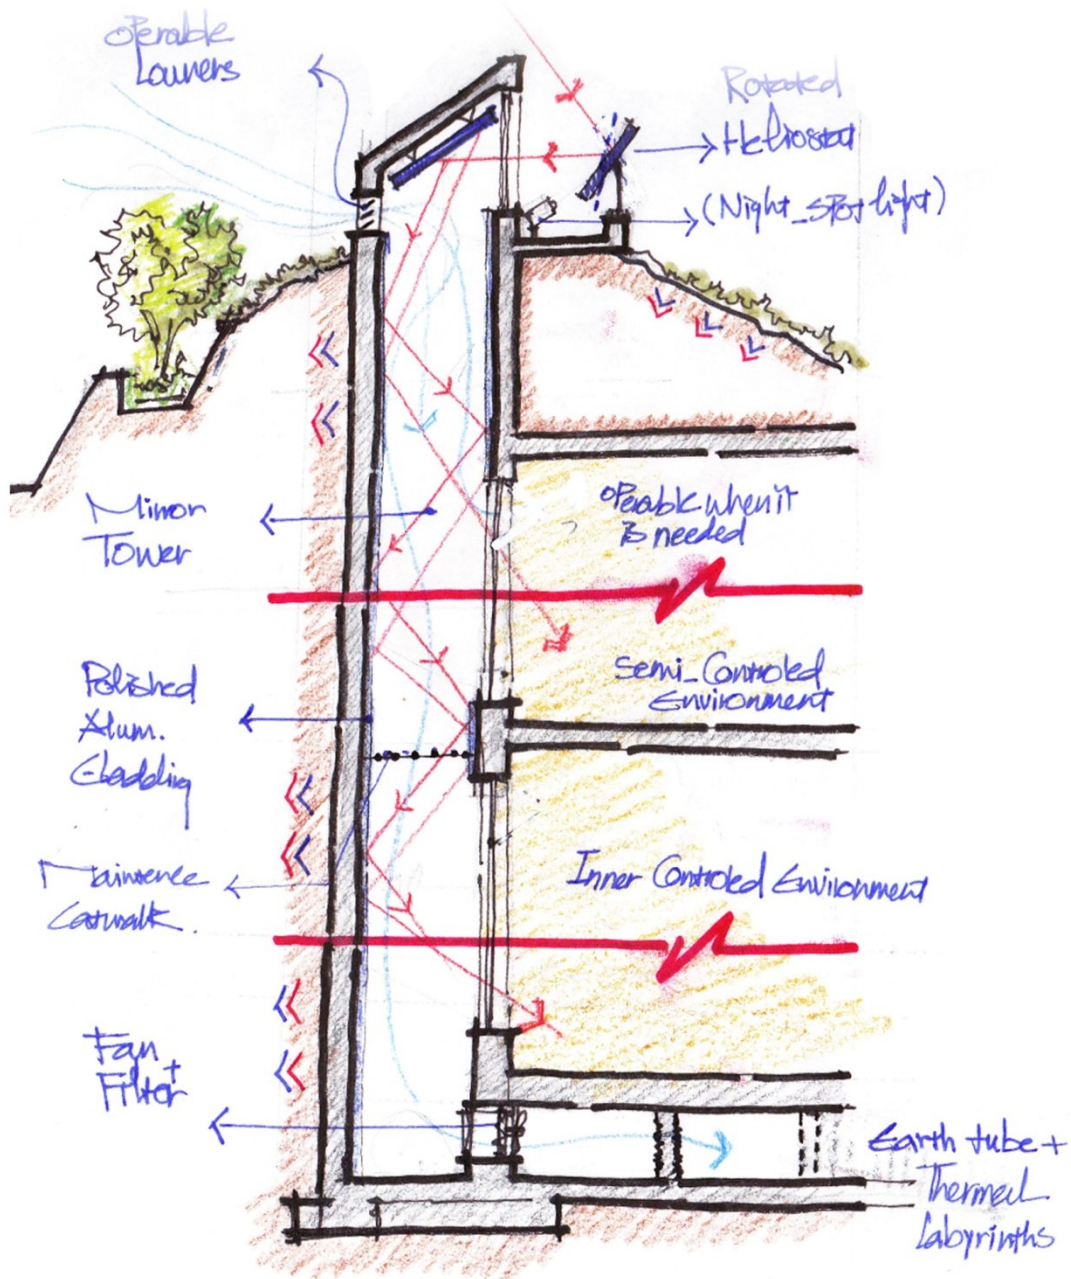 operable
Louvers
Rotated
Heliostat
(Night_spot light)
Mirror
Tower
operable when it
is needed
Polished
Alum.
Cladding
Semi_Controled
Environment
Maintence
Catwalk.
Inner Controled Environment
Fan +
Filter
Earth tube +
Thermal
Labyrinths